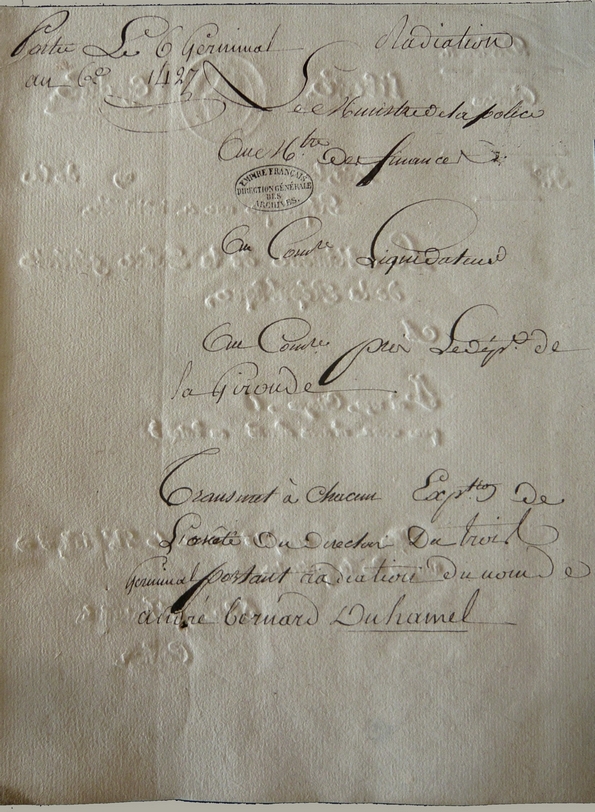 Partie Le 6 Germinal Radiation
an 6e 1427
Le Ministre de la police
Au Mtre des finances
EMPIRE FRANÇAIS
DIRECTION GÉNÉRALE
DES
ARCHIVES.
Au Comre Liquidateur
Au Comre près Le dépt de
la Gironde
Transmet à chacun Exptton de
L'arrêté du directoire Du trois
Germinal portant radiation du nom de
andré bernard Duhamel